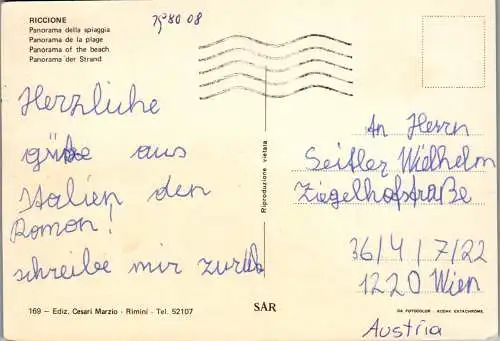 RICCIONE
Panorama della spiaggia
Panorama de la plage
Panorama of the beach
Panorama der Strand
Herzliche
grüße aus
Italien den
Romon!
schreibe mir zurück
169 – Ediz. Cesari Marzio - Rimini - Tel. 52107
Riproduzione vietata
SAR
An Herrn
Seitler Wielhelm
Ziegelhofstraße
36/4/7/22
1220 Wien
DA FOTOCOLOR KODAK EKTACHROME
Austria